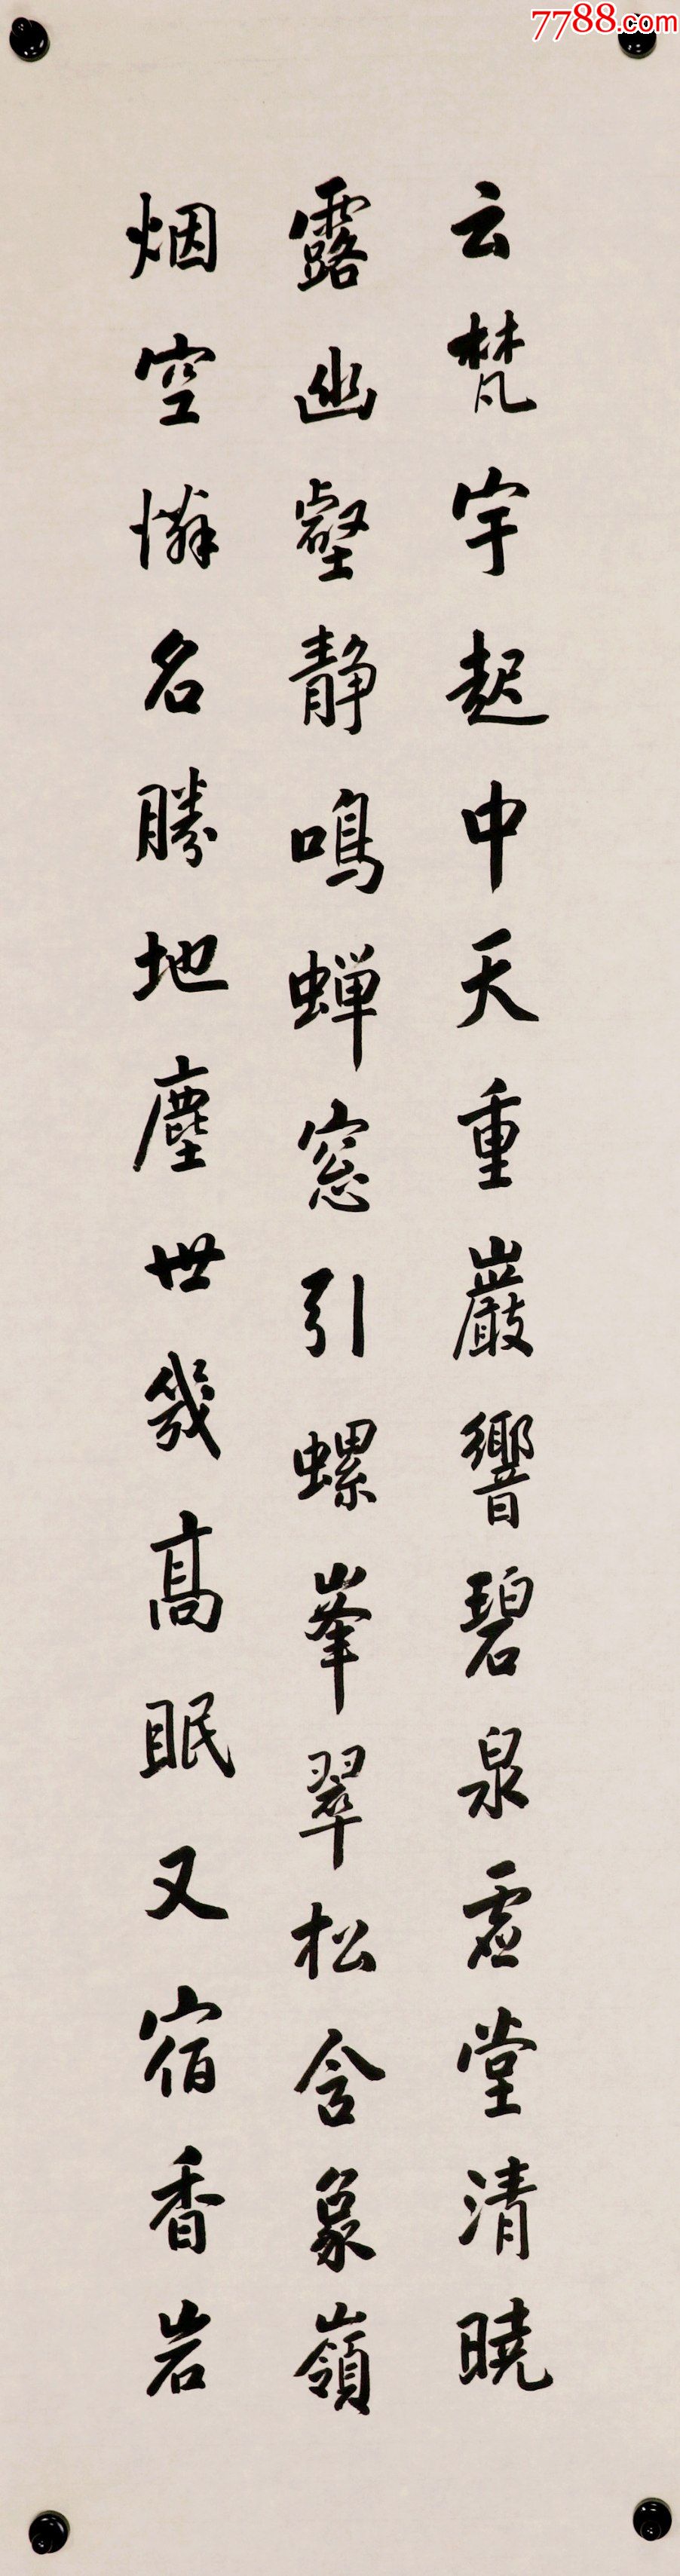 7788.com
云梵宇起中天重巖響碧泉虚堂清曉
露幽壑静鳴蝉窓引螺峯翠松含象嶺
烟空慚名勝地塵世幾高眠又宿香岩